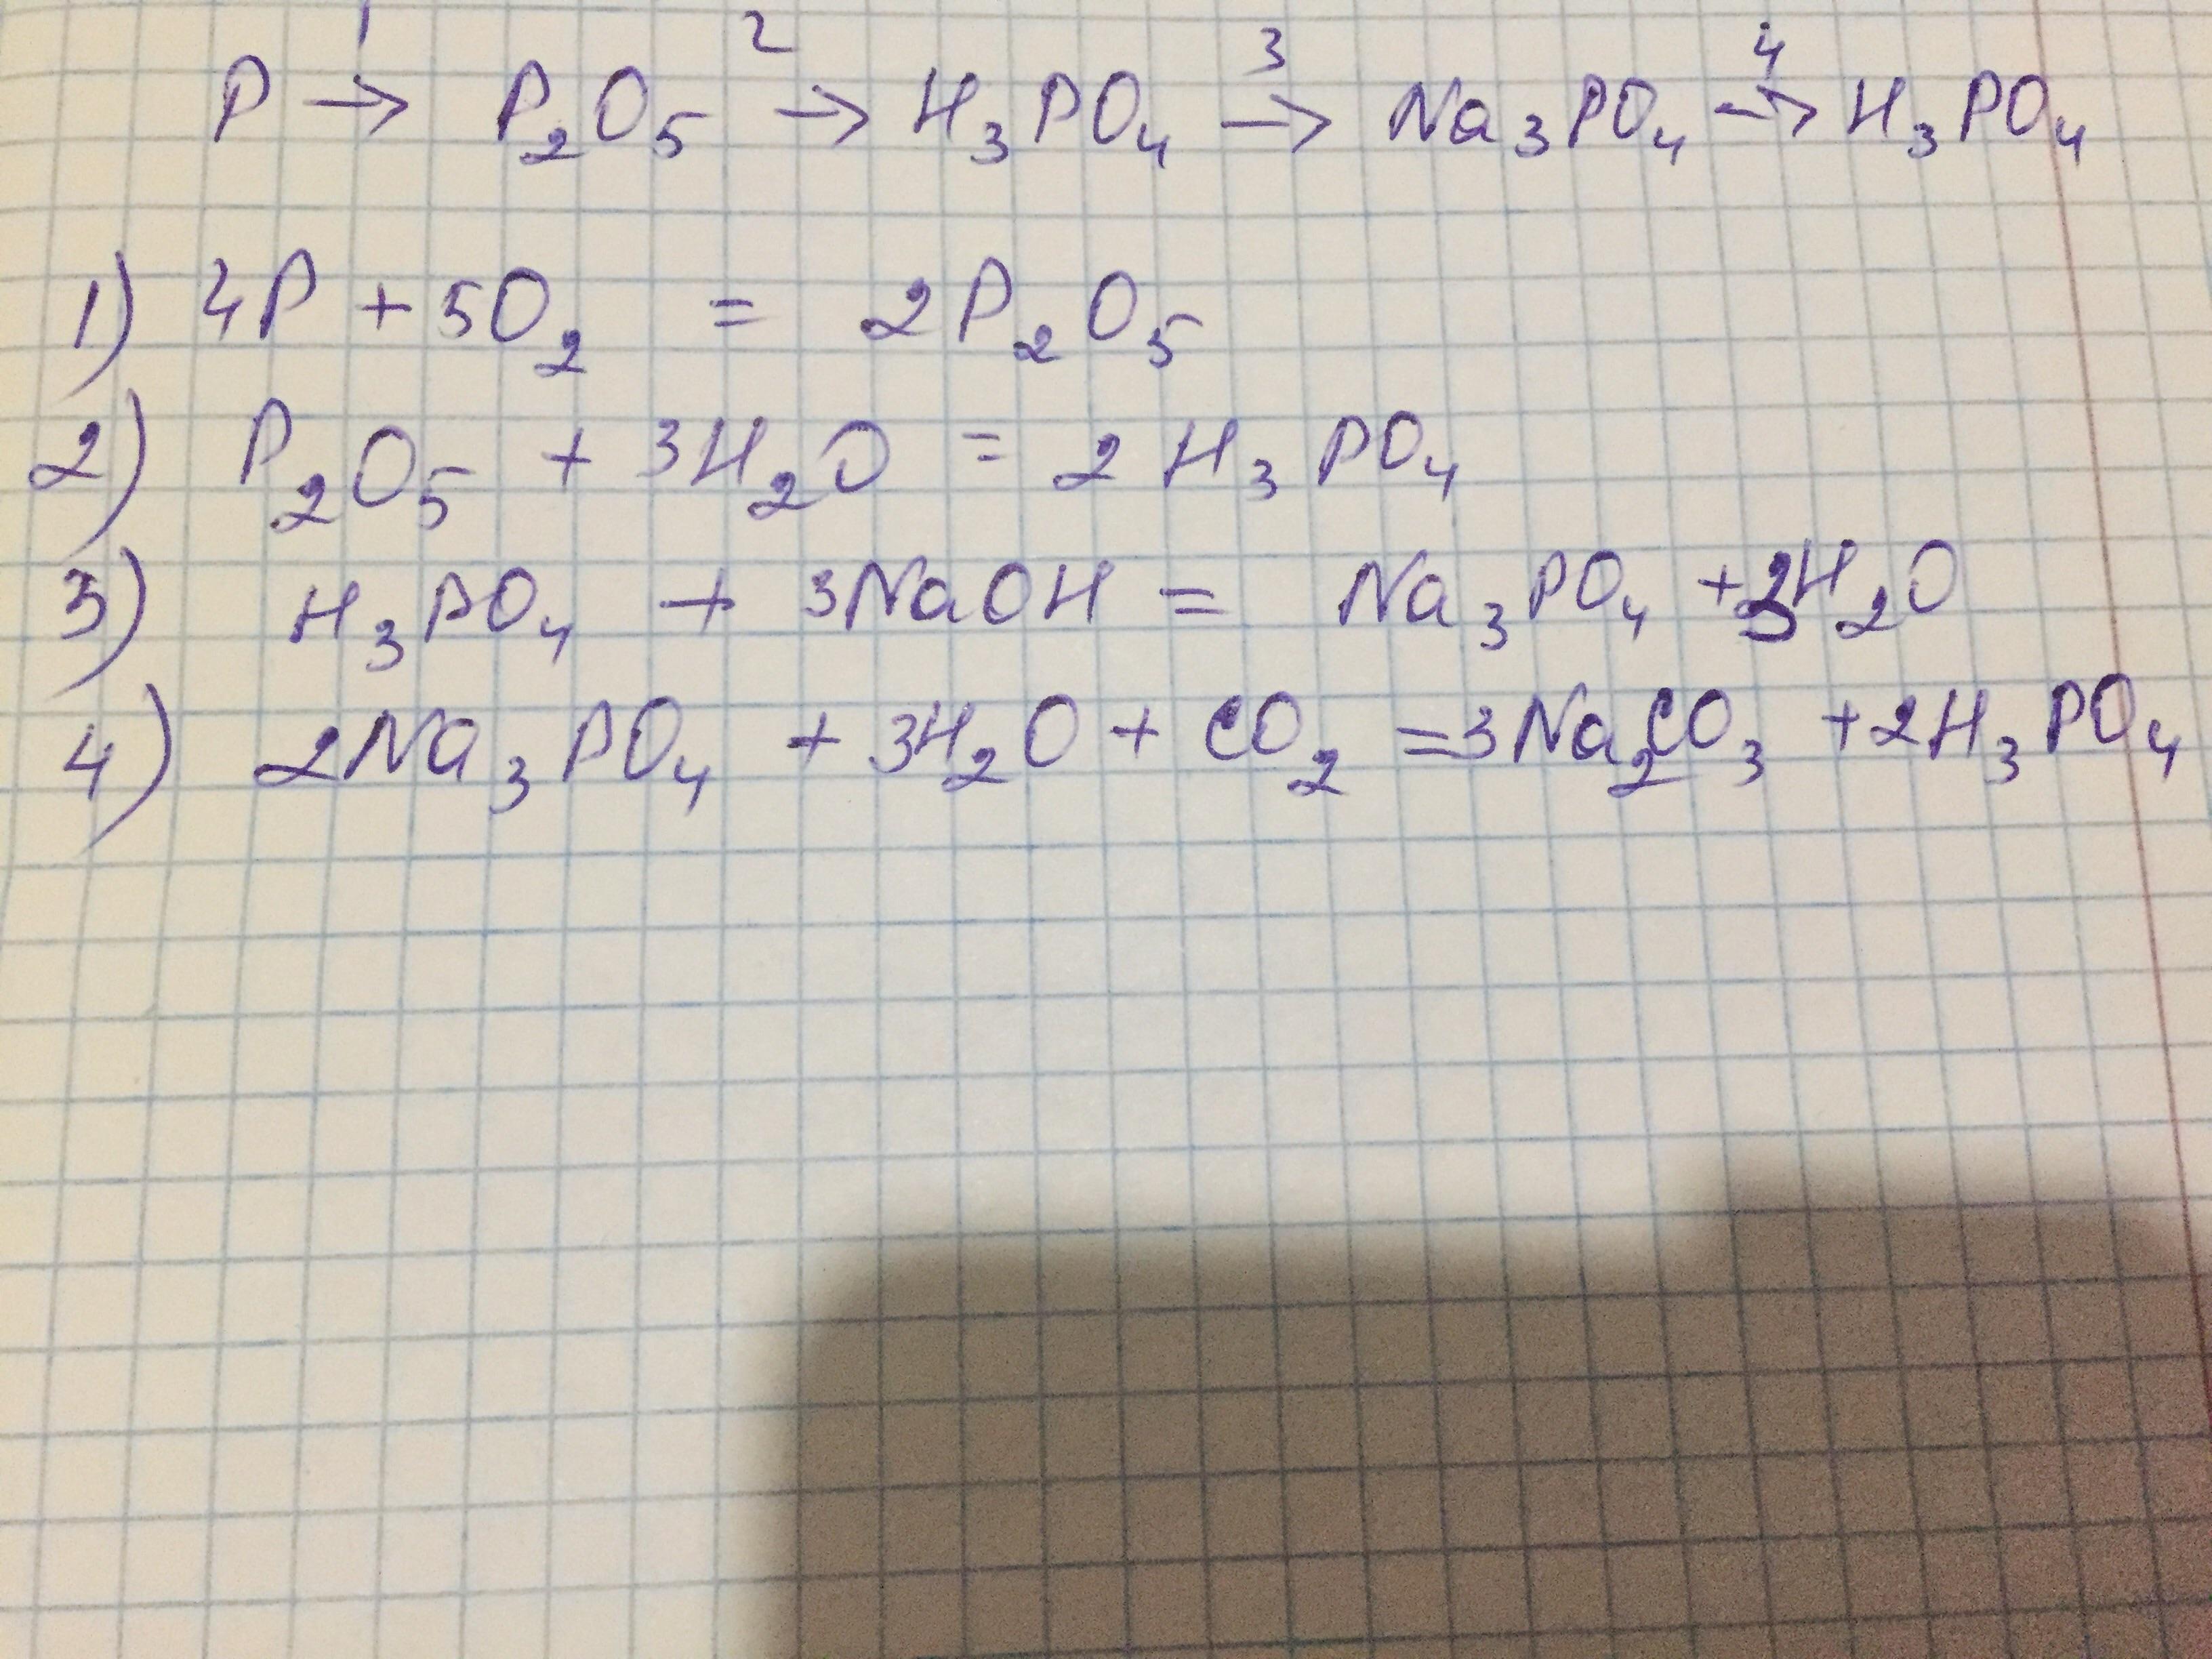 1 2 3 4
P → P₂O₅ → H₃PO₄ → Na₃PO₄ → H₃PO₄
1) 4P + 5O₂ = 2P₂O₅
2) P₂O₅ + 3H₂O = 2H₃PO₄
3) H₃PO₄ + 3NaOH = Na₃PO₄ + 3H₂O
4) 2Na₃PO₄ + 3H₂O + CO₂ = 3Na₂CO₃ + 2H₃PO₄